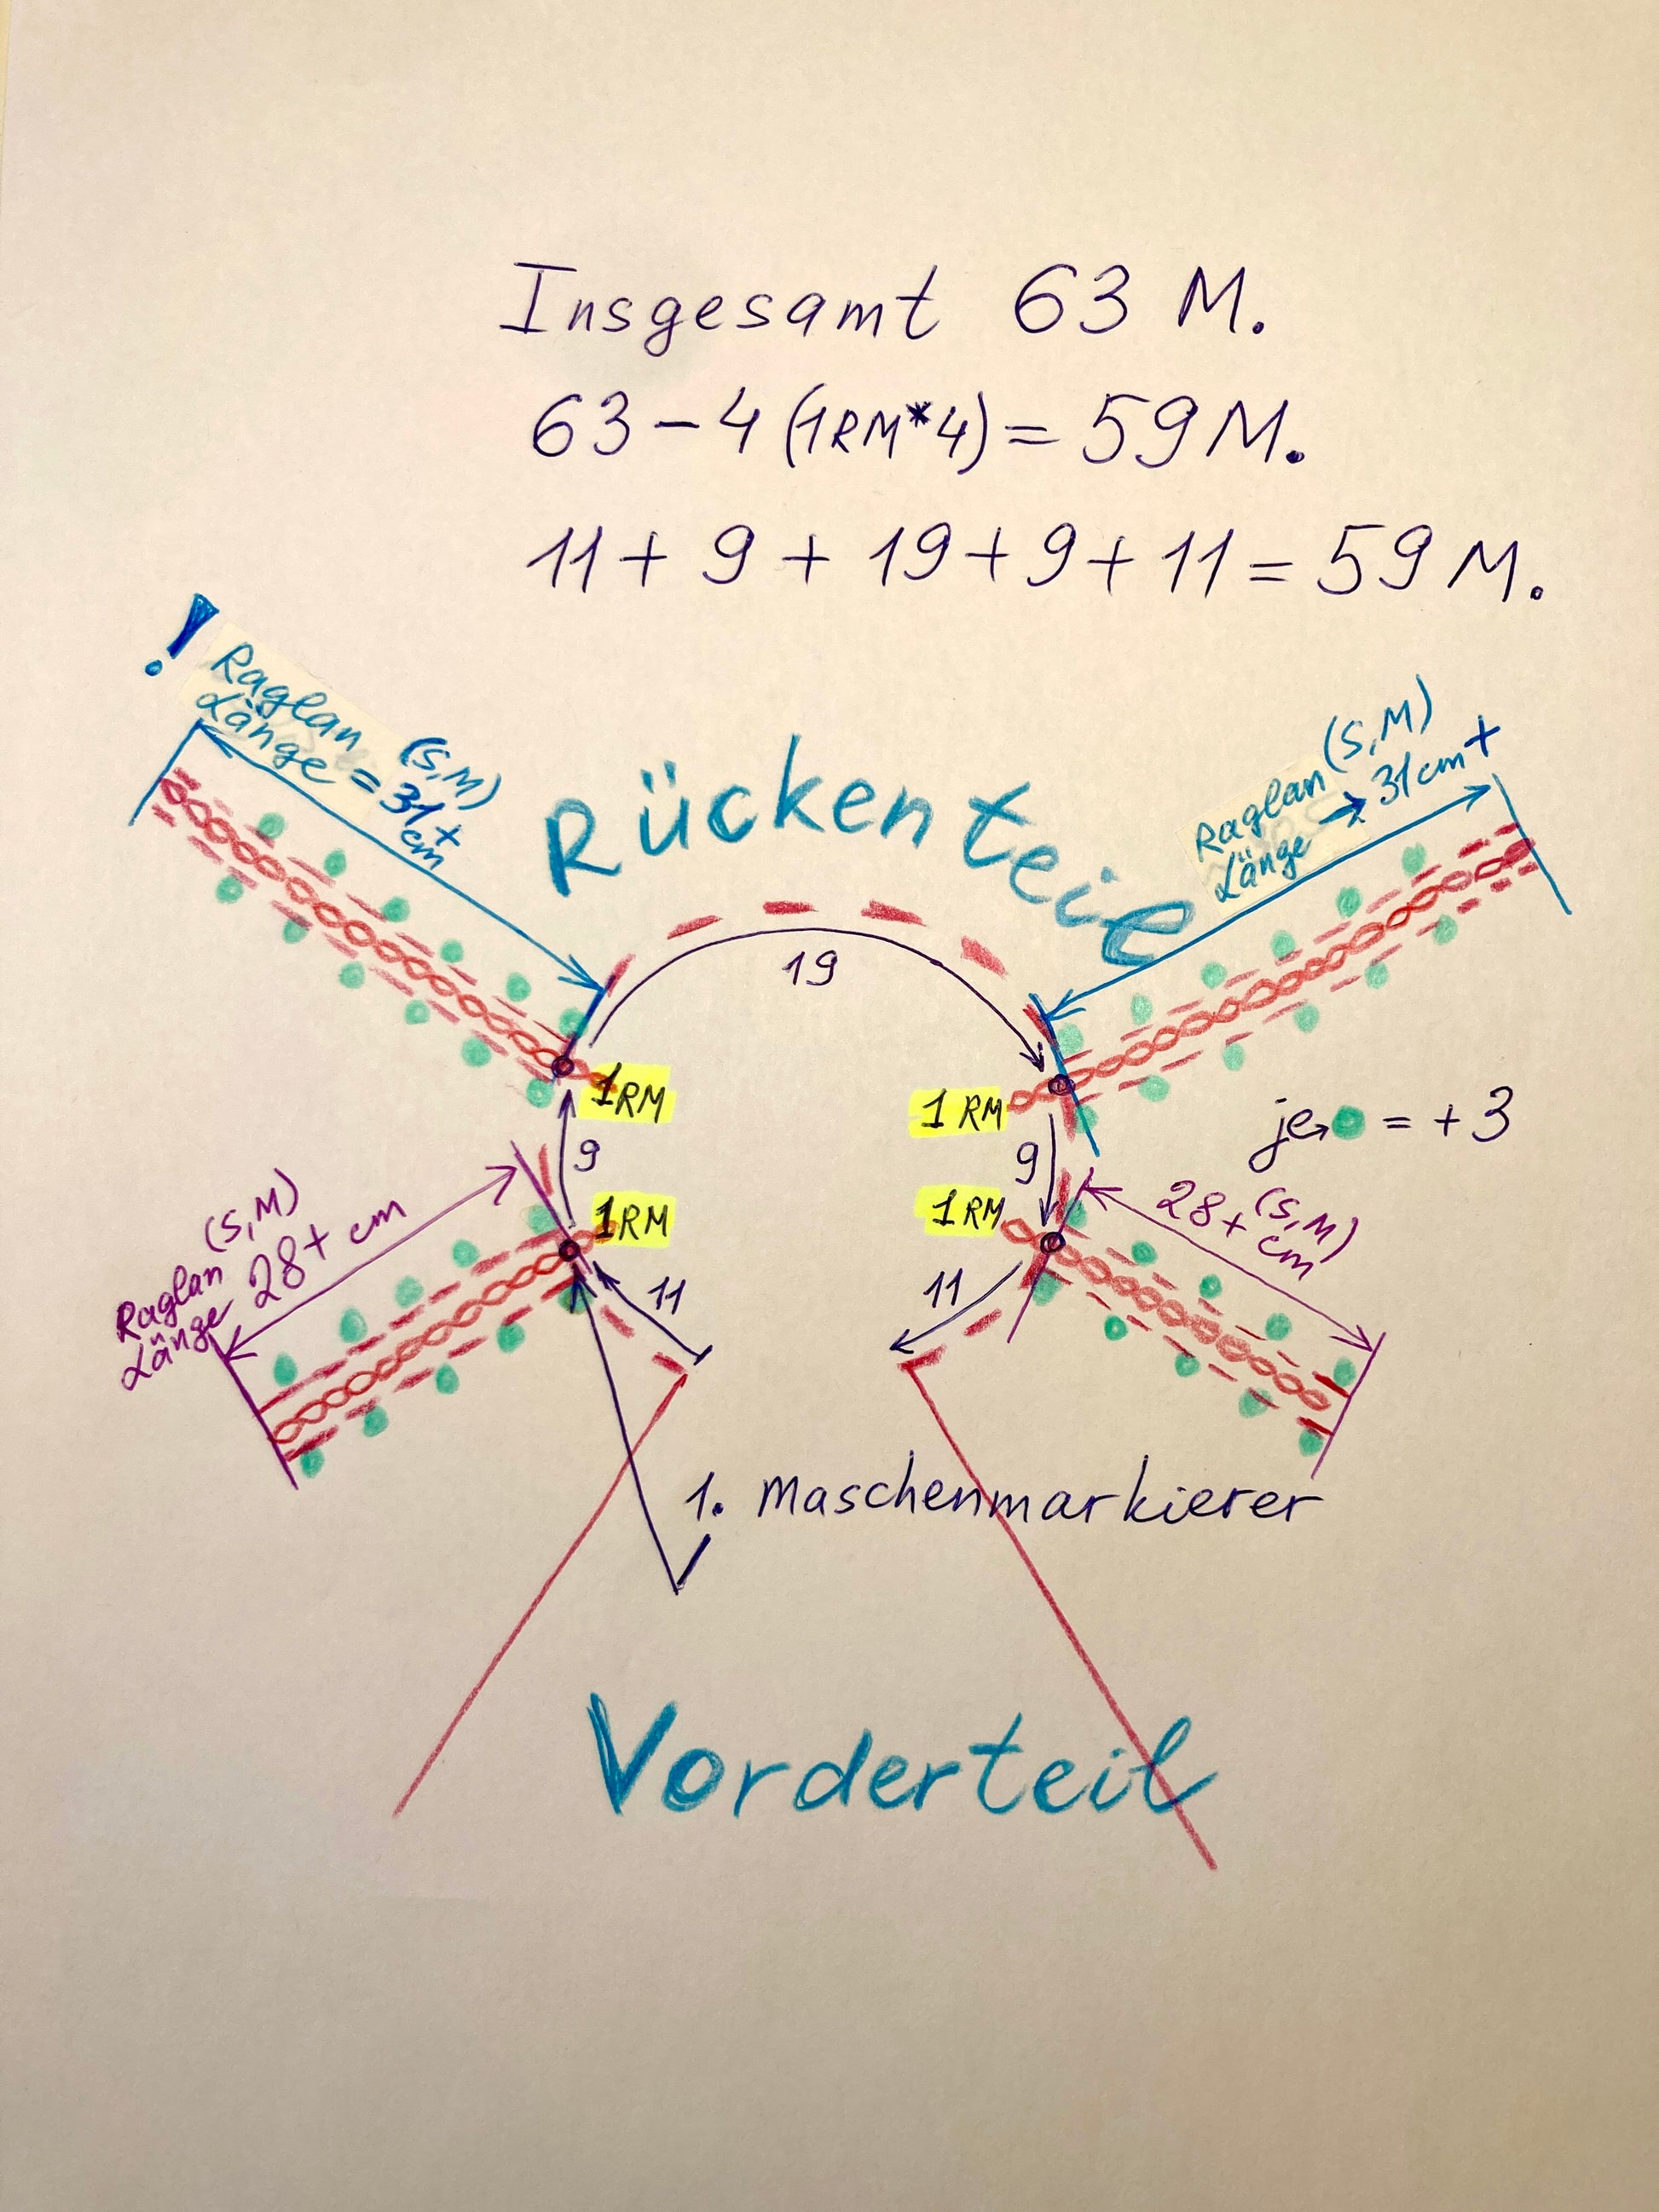 Insgesamt 63 M.
63 - 4 (1RM*4) = 59 M.
11 + 9 + 19 + 9 + 11 = 59 M.
!
Raglan (S,M)
Länge = 31+
cm
Raglan (S,M)
Länge → 31cm+
Rückenteil
19
1RM
1 RM
je → = +3
9
9
1RM
1 RM
(S,M)
Raglan
Länge 28+ cm
28+ (S,M)
cm
11
11
1. Maschenmarkierer
Vorderteil